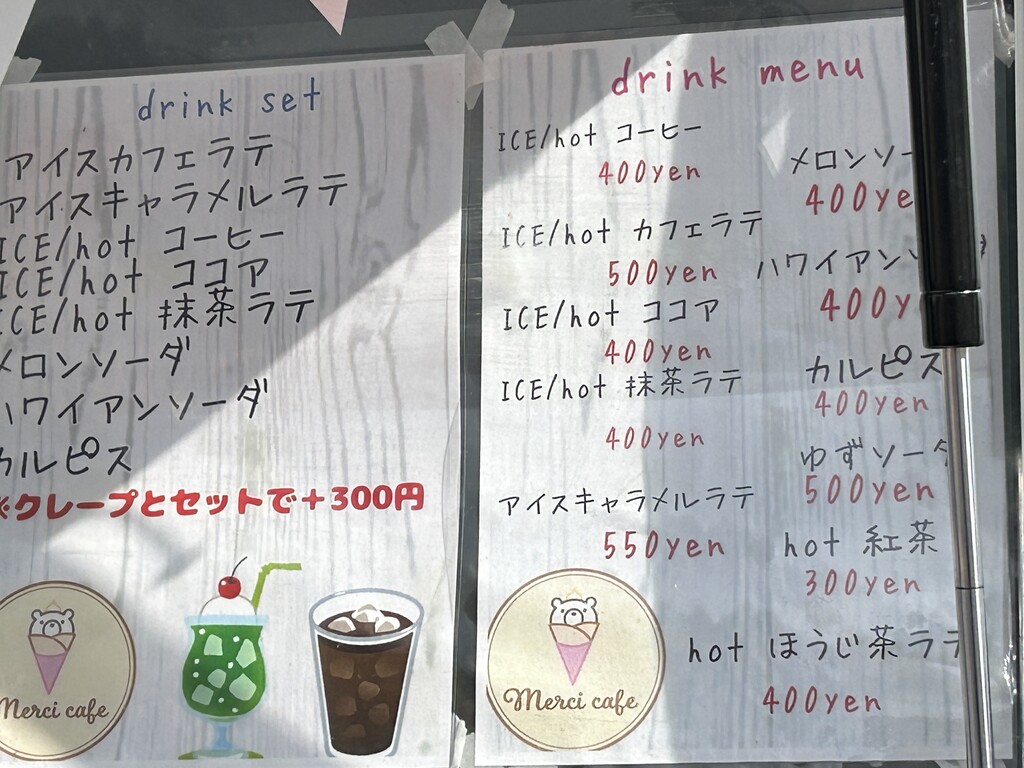 drink set
アイスカフェラテ
アイスキャラメルラテ
ICE/hot コーヒー
ICE/hot ココア
ICE/hot 抹茶ラテ
メロンソーダ
ハワイアンソーダ
カルピス
※クレープとセットで+300円
Merci cafe
drink menu
ICE/hot コーヒー
400yen
ICE/hot カフェラテ
500yen
ICE/hot ココア
400yen
ICE/hot 抹茶ラテ
400yen
アイスキャラメルラテ
550yen
メロンソー
400ye
ハワイアンソ
400y
カルピス
400yen
ゆずソーダ
500yen
hot 紅茶
300yen
hot ほうじ茶ラテ
400yen
Merci cafe